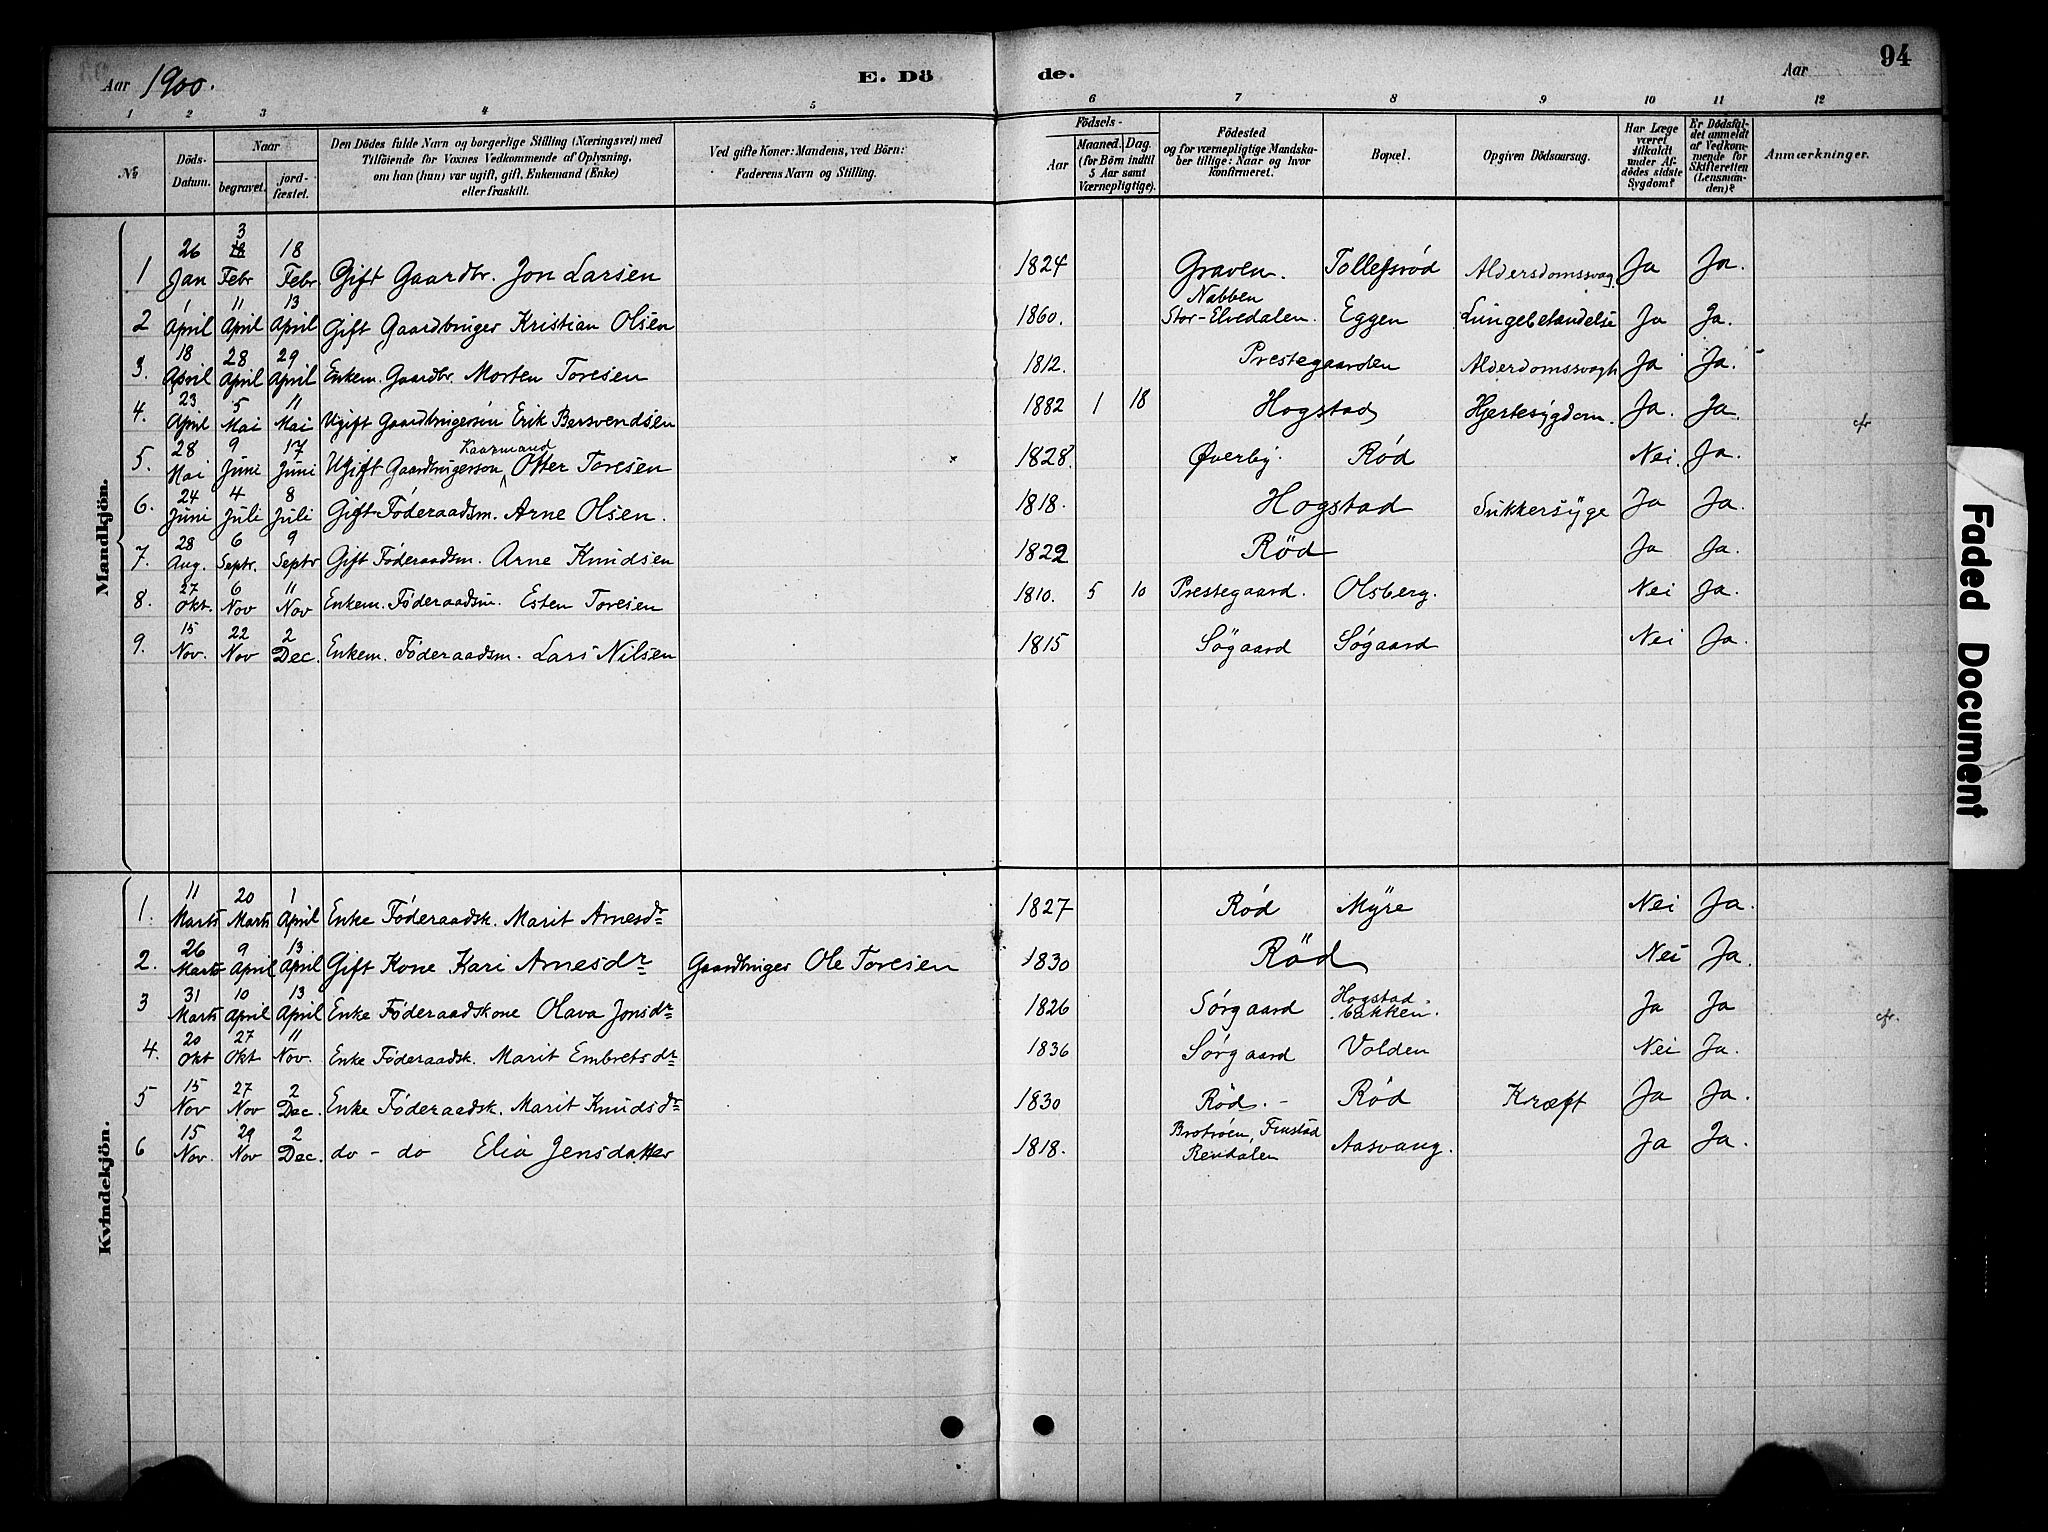 94
Aar 1900.
E. Dö de.
Aar
1 2 3 4 5 6 7 8 9 10 11 12
№
Döds-Datum.
Naar
begravet.
jord-fæstet.
Den Dödes fulde Navn og borgerlige Stilling (Næringsvei) med
Tilföiende for Voxnes Vedkommende af Oplysning,
om han (hun) var ugift, gift, Enkemand (Enke)
eller fraskilt.
Ved gifte Koner: Mandens, ved Börn:
Faderens Navn og Stilling.
Födsels-
Aar
Maaned. Dag.
(for Börn indtil
5 Aar samt
Værnepligtige).
Födested
og for værnepligtige Mandska-
ber tillige: Naar og hvor
konfirmeret.
Bopæl.
Opgiven Dödsaarsag.
Har Læge
været
tilkaldt
under Af-
dödes sidste
Sygdom?
Er Dödsfal-
det anmeldt
af Vedkom-
mende for
Skifteretten
(Lensman-
den)?
Anmærkninger.
Mandkjön.
1 26 Jan 18 3 Febr 18 Febr Gift Gaardbr. Jon Larsen 1824 Graven. Tollefsrød Aldersdomssvagh. Ja Ja.
2 1 April 11 April 13 April Gift Gaardbruger Kristian Olsen 1860. Nabben Stor-Elvedalen. Eggen Lungebetændelse Ja Ja.
3. 18 April 28 April 29 April Enkem. Gaardbr. Morten Toresen 1812. Prestegaarden Alderdomssvagh Ja Ja.
4. 23 April 5 Mai 11 Mai Ugift Gaardbrugersön Erik Bersvendsen 1882 1 18 Hogstad Hjertesygdom. Ja. Ja. cfr
5. 28 Mai 9 Juni 17 Juni Ugift Gaardbrugerson Kaarmand Otter Toresen 1828. Øverby. Rød Nei. Ja.
6. 24 Juni 4 Juli 8 Juli Gift Føderaadsm. Arne Olsen. 1818. Hogstad Sukkersÿge Ja Ja.
7. 28 Aug. 6 Septr. 9 Septr Gift Føderaadsm. Arne Knudsen 1822 Rød Ja Ja.
8. 27 Okt. 6 Nov 11 Nov Enkem. Føderaadsm. Esten Toresen 1810. 5 10 Prestegaard. Olsberg. Nei Ja.
9. 15 Nov. 22 Nov 2 Dec. Enkem. Føderaadsm. Lars Nilsen 1815 Søgaard Søgaard Nei Ja.
Kvindekjön.
1. 11 Marts 20 Marts 1 April Enke Føderaadsk. Marit Arnesdr 1827 Rød Mÿre Nei Ja.
2. 26 Marts 9 April 13 April Gift Kone Kari Arnesdr Gaardbruger Ole Toresen 1830 Rød Nei Ja.
3 31 Marts 10 April 13 April Enke Føderaadskone Olava Jonsdr 1826 Sørgaard Hogstad-bakken. Ja Ja cfr.
4. 20 Okt 27 Okt 11 Nov. Enke Føderaadsk. Marit Embretsdr 1836 Sørgaard Volden Nei Ja.
5 15 Nov 27 Nov 2 Dec. Enke Føderaadsk. Marit Knudsdr 1830 Rød. - Rød Kræft Ja Ja.
6 15 Nov. 29 Nov 2 Dec. do - do Elia Jensdatter 1818. Brotrøen, Finstad Rendalen Aasvang. Ja Ja.
Faded Document